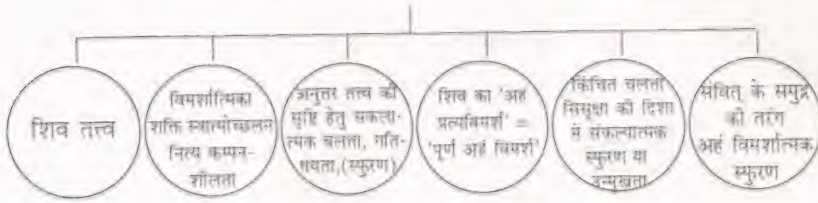 शिव तत्त्व
विमर्शात्मिका
शक्ति स्वात्मोच्छलन
नित्य कम्पन-
शीलता
अनुत्तर तत्त्व की
सृष्टि हेतु संकल्पा-
त्मक चलत्ता, गति-
मयता,(स्फुरण)
शिव का 'अहं
प्रत्यविमर्श' =
'पूर्ण अहं विमर्श'
किंचित चलत्ता
सिसृक्षा की दिशा
से संकल्पात्मक
स्फुरण या
उन्मुखता
संवित् के समुद्र
की तरंग
अहं विमर्शात्मक
स्फुरण